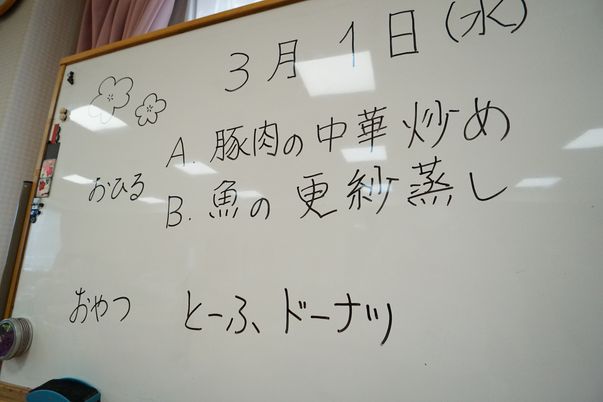 3月1日(水)
おひる
A. 豚肉の中華炒め
B. 魚の更紗蒸し
おやつ とーふドーナツ